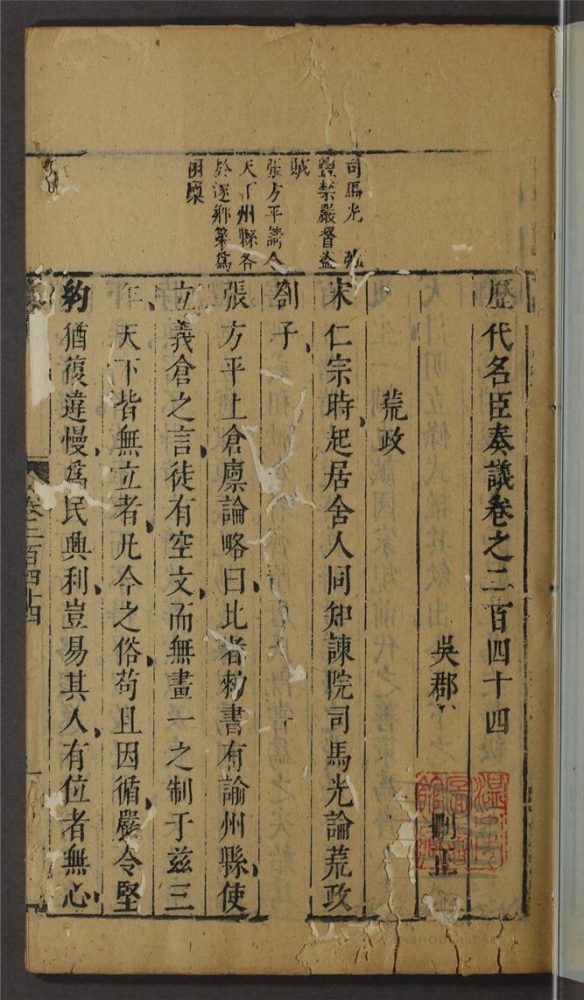 歷代名臣奏議卷之二百四十四
吳郡
刪正
荒政
宋仁宗時起居舍人同知諫院司馬光論荒政
劄子
張方平上倉廩論略曰比者勑書有諭州縣使
立義倉之言徒有空文而無畫一之制于茲三
年天下皆無立者凡今之俗苟且因循嚴令堅
約猶復違慢為民興利豈易其人有位者無心
司馬光
禁嚴督盜
賊
張方平請令
天下州縣各
於逐鄉築為
囷廩
卷二百四十四